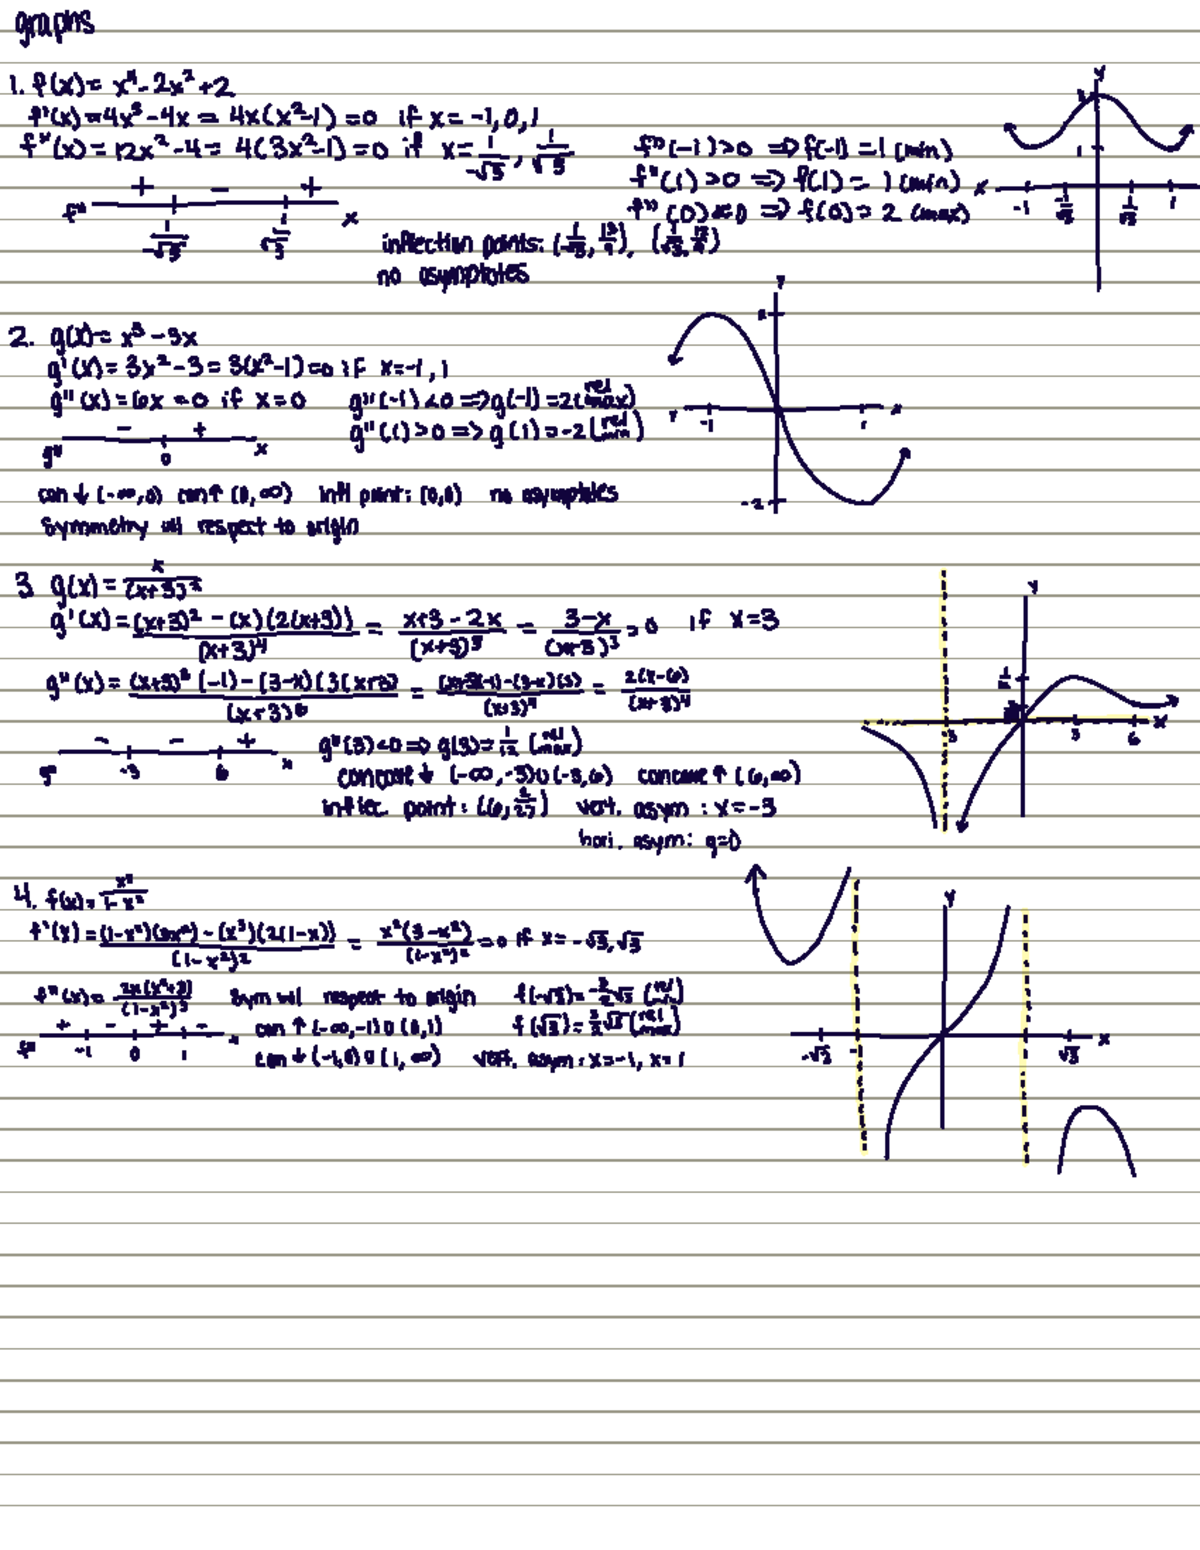 graphs
1. f(x) = x⁴ - 2x² + 2
f'(x) = 4x³ - 4x = 4x(x²-1) = 0 if x = -1, 0, 1
f"(x) = 12x² - 4 = 4(3x²-1) = 0 if x = 1/-√3, 1/√3
f"(-1) > 0 => f(-1) = 1 (min)
f"(1) > 0 => f(1) = 1 (min)
f"(0) < 0 => f(0) = 2 (max)
+ - +
f" x
1/-√3 1/√3
inflection points: (1/-√3, 13/9), (1/√3, 13/9)
no asymptotes
y
2
1
x -1 1/-√3 1/√3 1
2. g(x) = x³ - 3x
g'(x) = 3x² - 3 = 3(x²-1) = 0 if x = -1, 1
g"(x) = 6x = 0 if x = 0 g"(-1) < 0 => g(-1) = 2 (rel max)
g"(1) > 0 => g(1) = -2 (rel min)
- +
g" 0 x
con ↓ (-∞, 0) con ↑ (0, ∞) infl point: (0,0) no asymptotes
symmetry w/ respect to origin
y
2
-1 1 x
-2
3 g(x) = x/(x+3)²
g'(x) = (x+3)² - (x)(2(x+3))/(x+3)⁴ = x+3-2x/(x+3)³ = 3-x/(x+3)³ = 0 if x = 3
g"(x) = (x+3)³(-1) - (3-x)(3(x+3)/(x+3)⁶ = (x+3)(-1)-(3-x)(3)/(x+3)⁴ = 2(x-6)/(x+3)⁴
- - +
g" -3 6 x
g"(3) < 0 => g(3) = 1/12 (rel max)
concave ↓ (-∞, -3) ∪ (-3, 6) concave ↑ (6, ∞)
inflec. point: (6, 2/27) vert. asym: x = -3
hori. asym: y=0
y
1/12
3 3 6 x
4. f(x) = x³/1-x²
f'(x) = (1-x²)(3x²) - (x³)(2(1-x))/(1-x²)² = x²(3-x²)/(1-x²)² = 0 if x = -√3, √3
f"(x) = 2x(x²+3)/(1-x²)³ sym w/ respect to origin f(-√3) = -3/2√3 (rel min)
+ - + -
f" -1 0 1 x
con ↑ (-∞, -1) ∪ (0, 1) f(√3) = 3/2√3 (rel max)
con ↓ (-1, 0) ∪ (1, ∞) vert. asym: x = -1, x = 1
y
-√3 √3 x